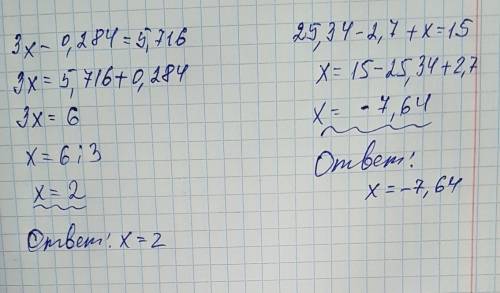 3x - 0,284 = 5,716
3x = 5,716 + 0,284
3x = 6
x = 6 : 3
x = 2
Ответ: x = 2
25,34 - 2,7 + x = 15
x = 15 - 25,34 + 2,7
x = -7,64
Ответ:
x = -7,64